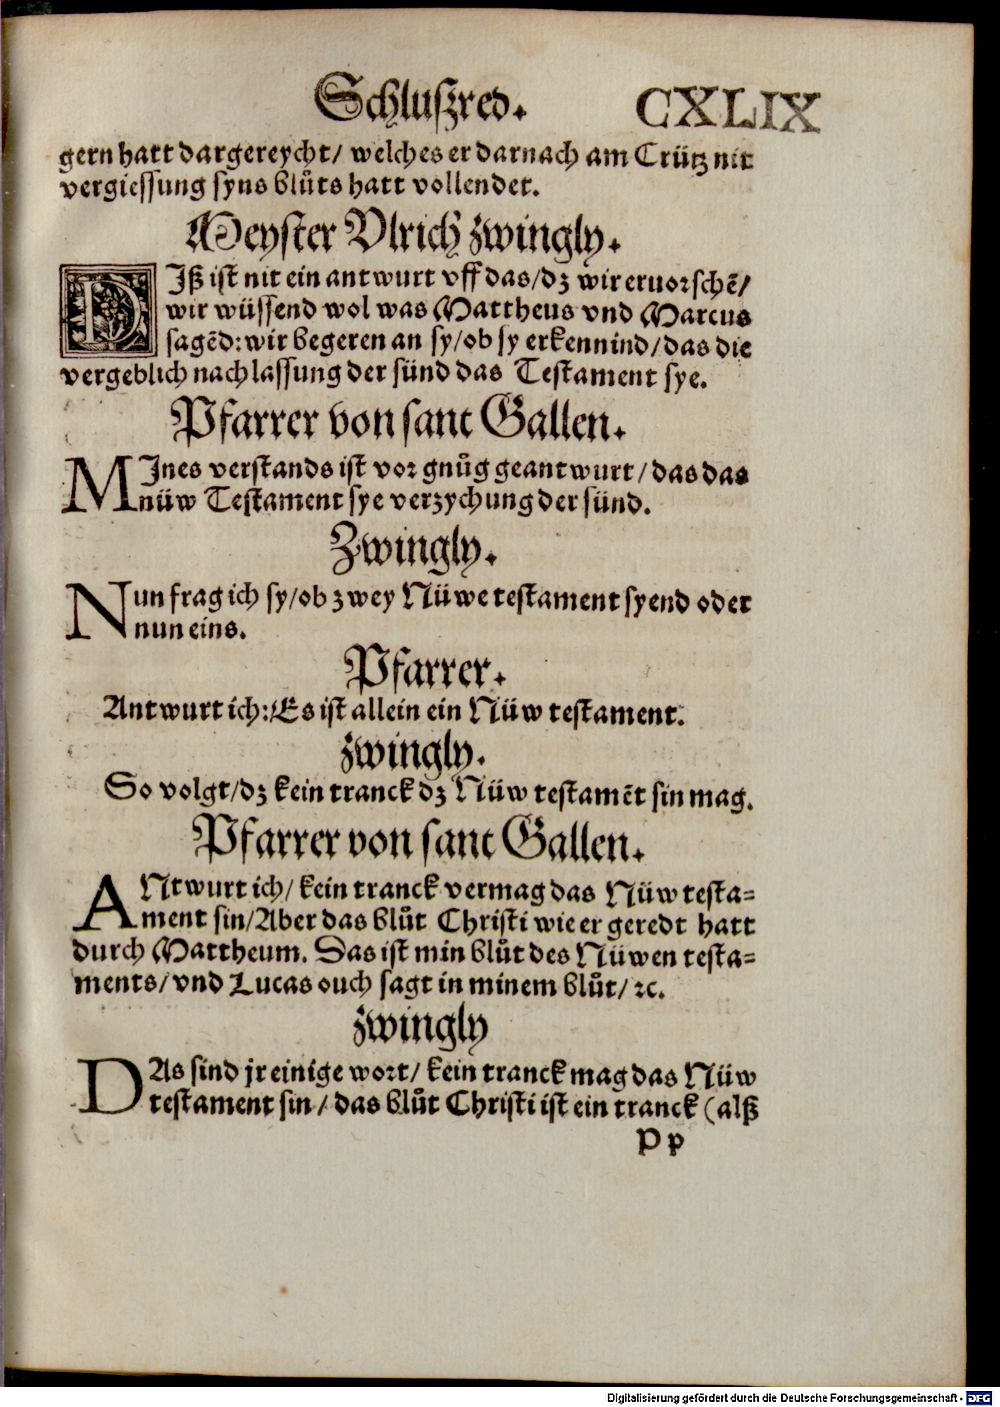 Schluſzred. CXLIX
gern hatt dargereycht/ welches er darnach am Crütz mit
vergieſſung ſyns blůts hatt vollendet.
Meyſter Vlrich zwingly.
DIß iſt nit ein antwurt vff das/dz wir eruorſchē/
wir wüſſend wol was Mattheus vnd Marcus
ſagēd: wir begeren an ſy/ob ſy erkennind/das die
vergeblich nachlaſſung der ſünd das Teſtament ſye.
Pfarrer von ſant Gallen.
MInes verſtands iſt vor gnůg geantwurt/das das
nüw Teſtament ſye verzychung der ſünd.
Zwingly.
Nun frag ich ſy/ob zwey Nüwe teſtament ſyend oder
nun eins.
Pfarrer.
Antwurt ich: Es iſt allein ein Nüw teſtament.
zwingly.
So volgt/dz kein tranck dz Nüw teſtamēt ſin mag.
Pfarrer von ſant Gallen.
ANtwurt ich/ kein tranck vermag das Nüw teſta=
ment ſin/Aber das blůt Chriſti wie er geredt hatt
durch Mattheum. Das iſt min blůt des Nüwen teſta=
ments/vnd Lucas ouch ſagt in minem blůt/ ꝛc.
zwingly
DAs ſind jr einige wort/ kein tranck mag das Nüw
teſtament ſin/ das blůt Chriſti iſt ein tranck (alß
P p
Digitalisierung gefördert durch die Deutsche Forschungsgemeinschaft - DFG